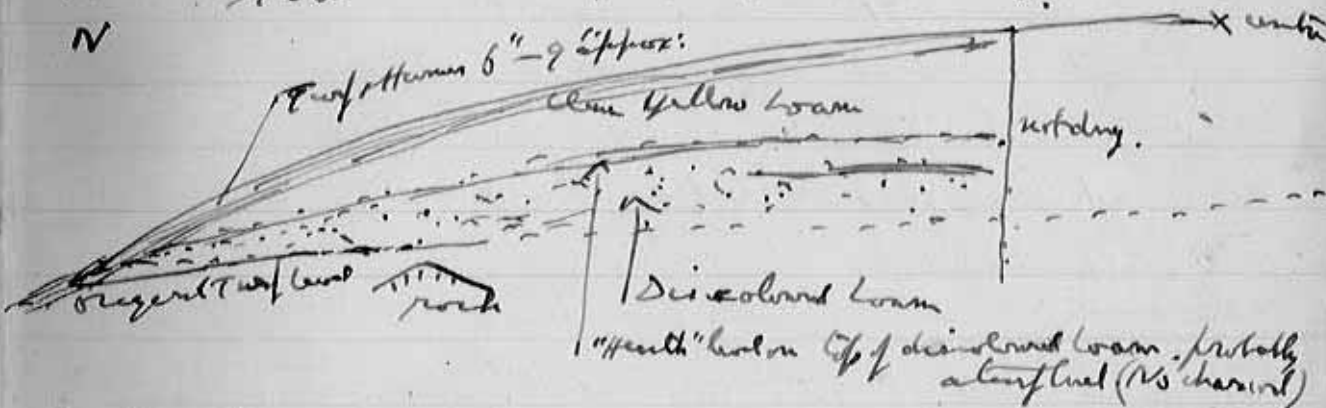 N
x centre
Turf & Humus 6"–9" approx:
Clean Yellow Loam
not dug.
Original Turf level
rock
Discoloured Loam
"Hearth" level on top of discoloured loam. probably
a turf level (No charcoal)